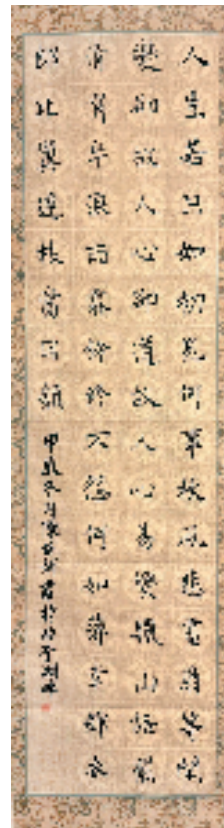 人生若只如初見何事秋風悲畫扇等閑
變卻故人心卻道故人心易變驪山語罷
清宵半淚雨霖鈴終不怨何如薄倖錦衣
郎比翼連枝當日願